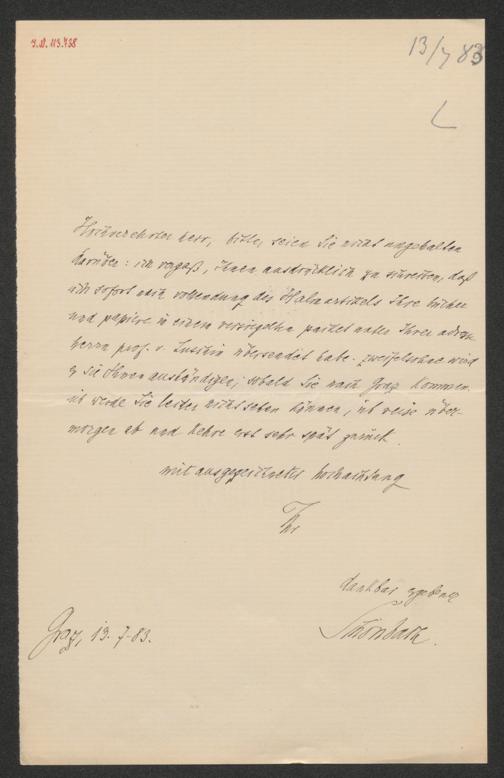 I.N. 113.738
13/7 83
Hochverehrter herr, bitte, seien Sie nicht ungehalten
darüber: ich vergaß, Ihnen ausdrücklich zu schreiben, daß
ich sofort nach vollendung des Halmartikels Ihre bücher
und papiere in einem versiegelten packet unter Ihrer adresse
herrn prof. v. Luschin übersendet habe. zweifelsohne wird
er sie Ihnen aushändigen, sobald Sie nach Graz kommen.
ich werde Sie leider nicht sehen können, ich reise über-
morgen ab und kehre erst sehr spät zurück.
mit ausgezeichneter hochachtung
Ihr
dankbar ergebener
Schönbach.
Graz, 13. 7. 83.